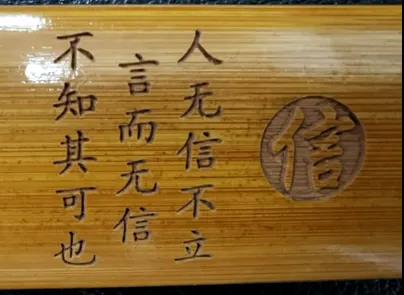 信
人无信不立
言而无信
不知其可也